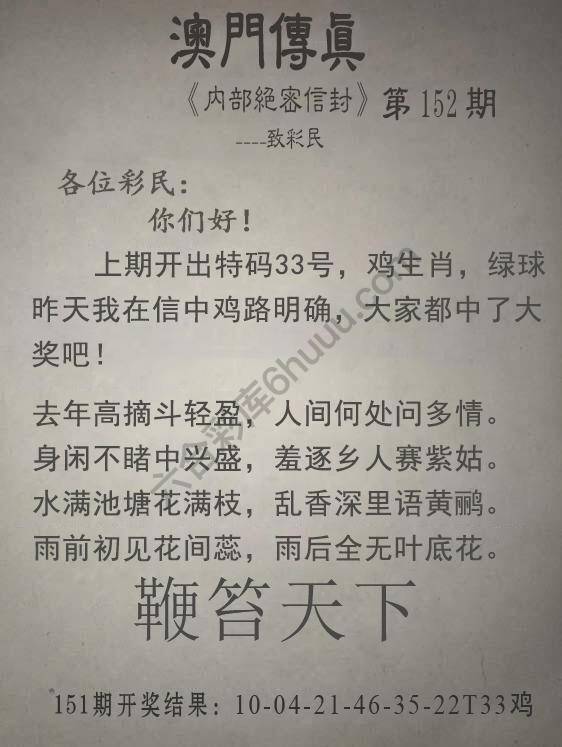 澳門傳眞
《内部絕密信封》第152期
----致彩民
各位彩民:
你们好!
上期开出特码33号，鸡生肖，绿球
昨天我在信中鸡路明确，大家都中了大
奖吧!
去年高摘斗轻盈，人间何处问多情。
身闲不睹中兴盛，羞逐乡人赛紫姑。
水满池塘花满枝，乱香深里语黄鹂。
雨前初见花间蕊，雨后全无叶底花。
鞭笞天下
151期开奖结果: 10-04-21-46-35-22T33鸡
六合彩库6huuu.com